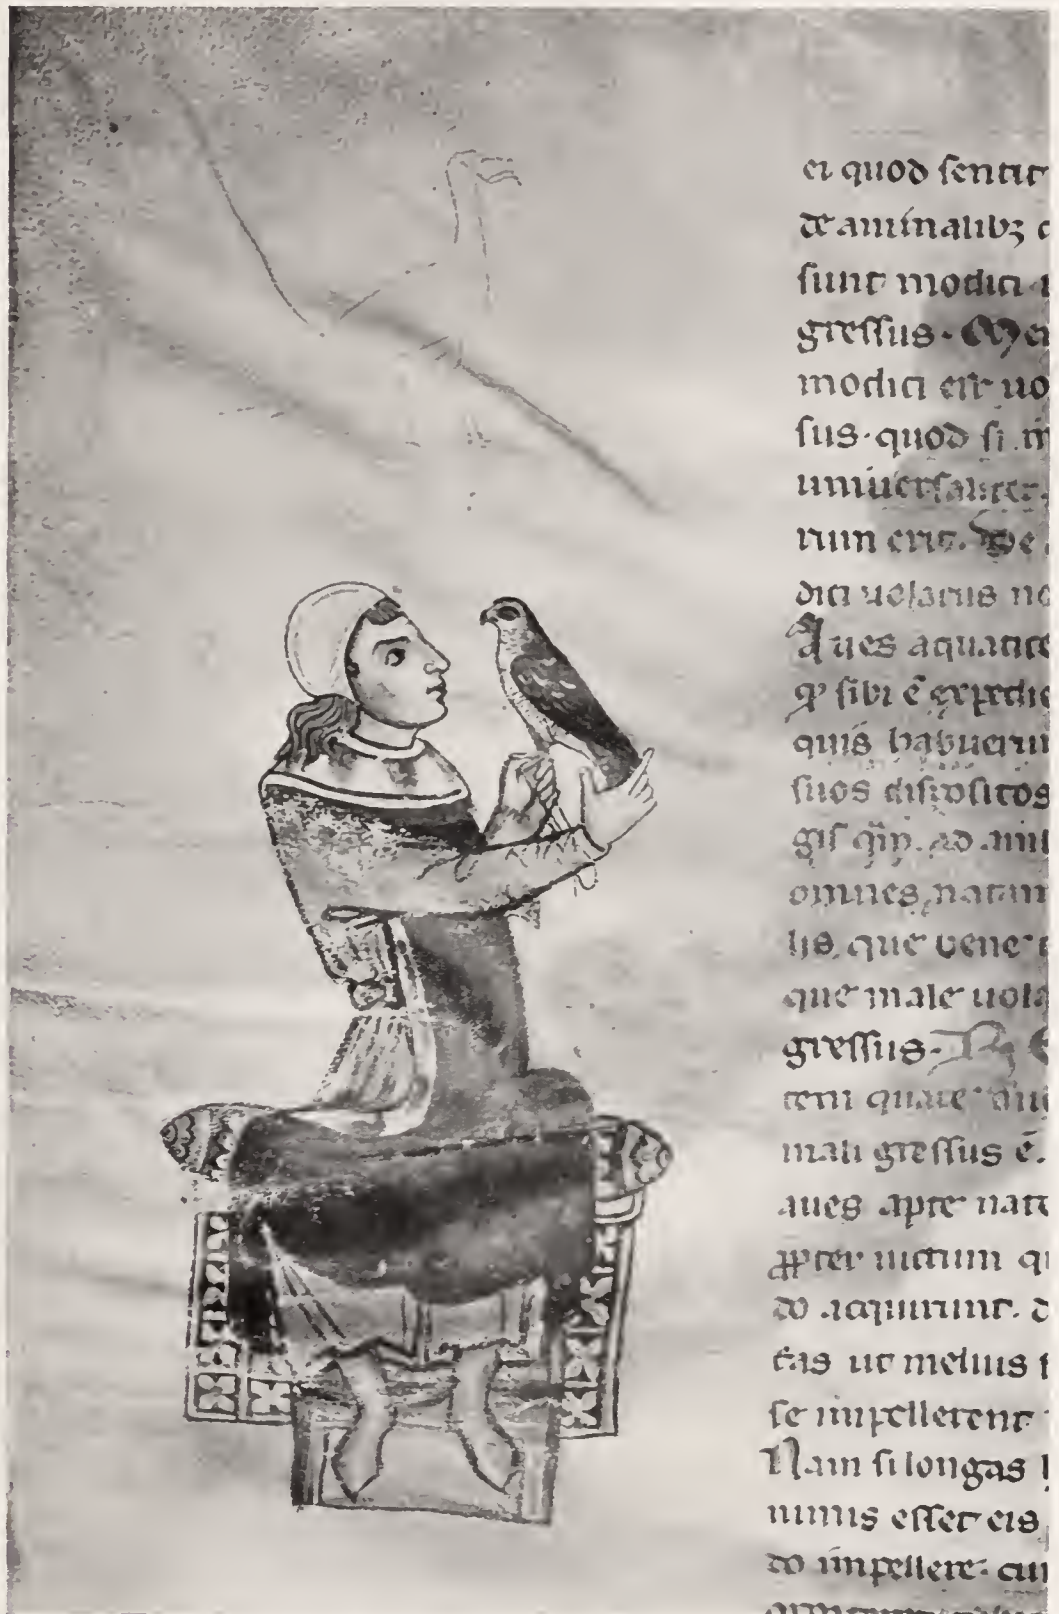 ei quod sentit
de animalibꝫ
sunt modici
gressus. Me
modici est uo
sus. quod si
uniuersaliter
rum erit. De
dici uolatus no
Aues aquatice
ꝙ sibi ē expedie
quis habuerun
suos dispositos
gis ad
omnes natan
lis. que uene
que male uola
gressus.
tem quare
mali gressus ē.
aues apte nat
ꝓpter uictum
do acquirunt.
tas ut melius
se impellerent
Nam si longas
minus esset eis
do impellere.